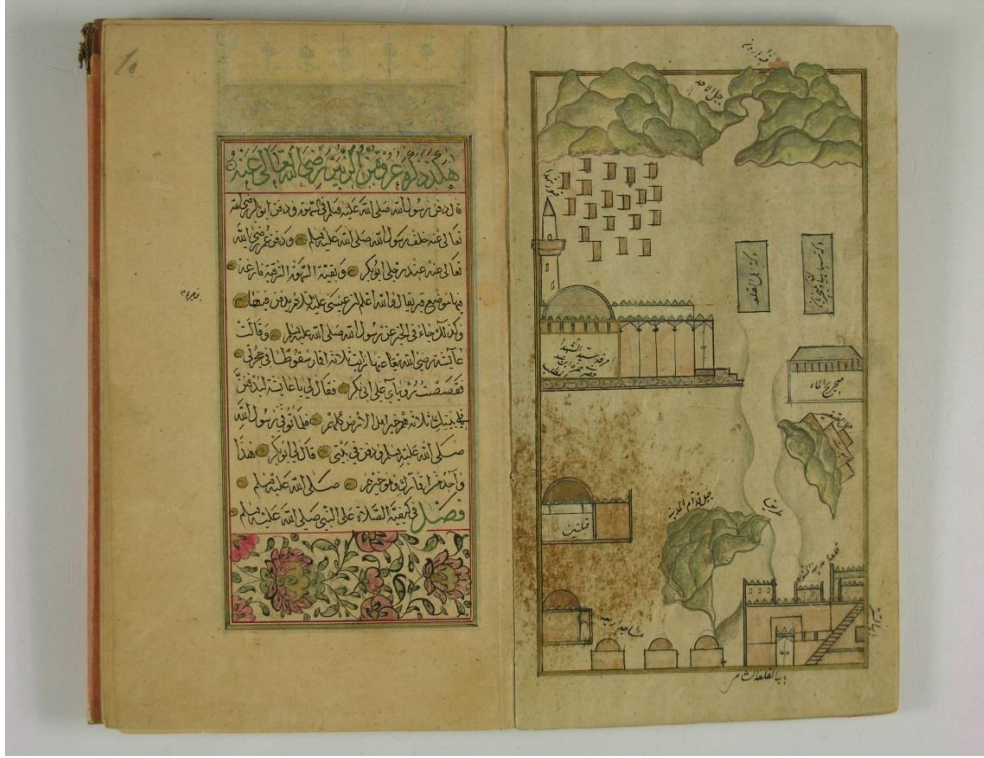 هكذا ذكره عروة بن الزبير رضى الله تعالى عنه
قال دفن رسول الله صلى الله عليه وسلم فى السهوة ودفن ابو بكر رضى الله
تعالى عنه خلف رسول الله صلى الله عليه وسلم ودفن عمر رضى الله
تعالى عنه عند رجلى ابى بكر وبقيت السهوة الشرقية فارغة
فيها موضع قبر يقال والله اعلم ان عيسى عليه السلام يدفن فيها
وكذلك جاء فى الخبر عن رسول الله صلى الله عليه وسلم وقالت
عايشة رضى الله تعالى عنها رايت ثلاثة اقمار سقوطا فى حجرتى
فقصصت رؤياى على ابى بكر فقال لى يا عايشة ليدفنن
فى بيتك ثلاثة هم خير اهل الارض كلهم فلما توفى رسول الله
صلى الله عليه وسلم ودفن فى بيتى قال لى ابو بكر هذا
واحد من اقمارك وهو خيرهم صلى الله عليه وسلم
فصل فى كيفية الصلاة على النبى صلى الله عليه وسلم
جبل الاحد
مرقد سيد الشهدا
مجرى الماء
قبلتين
جبل قدام المدينة
باب القلعه الشامى